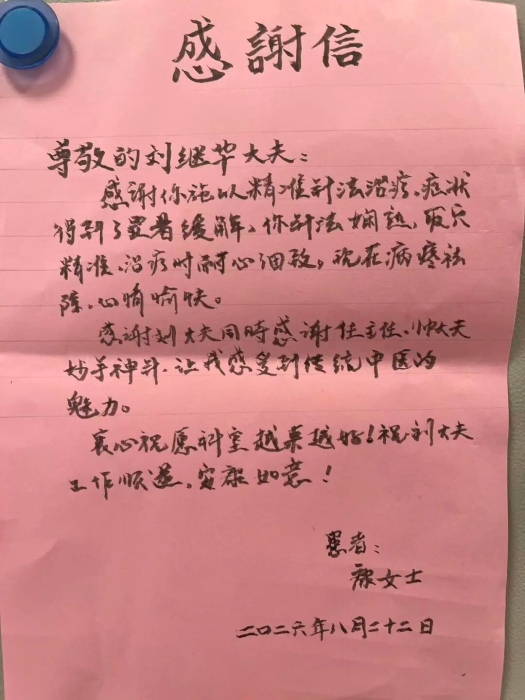 感謝信
尊敬的刘继华大夫：
感谢你施以精准针法治疗，症状
得到了显著缓解，你针法娴熟，取穴
精准，治疗时耐心细致，现在病疼祛
除，心情愉快。
感谢刘大夫同時感谢任主任、帅大夫
妙手神针，让我感受到传统中医的
魅力。
衷心祝愿科室越来越好！祝刘大夫
工作顺遂，安康如意！
患者：
女士
二〇二六年八月二十二日